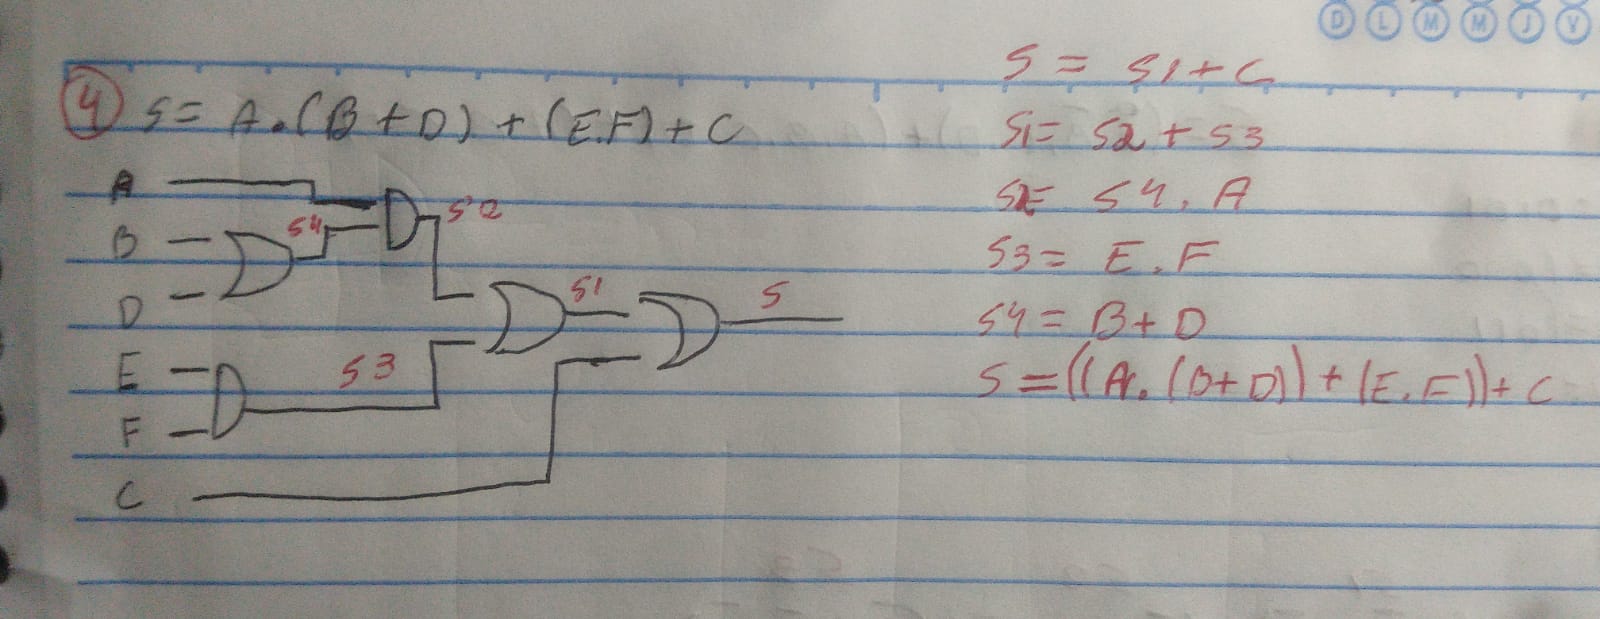 D L M M J V
4 S = A.(B + D) + (E.F) + C
A
B
D
E
F
C
S4
S2
S3
S1
S
S = S1 + C
S1 = S2 + S3
S2 = S4 . A
S3 = E . F
S4 = B + D
S = ((A . (B + D)) + (E . F)) + C